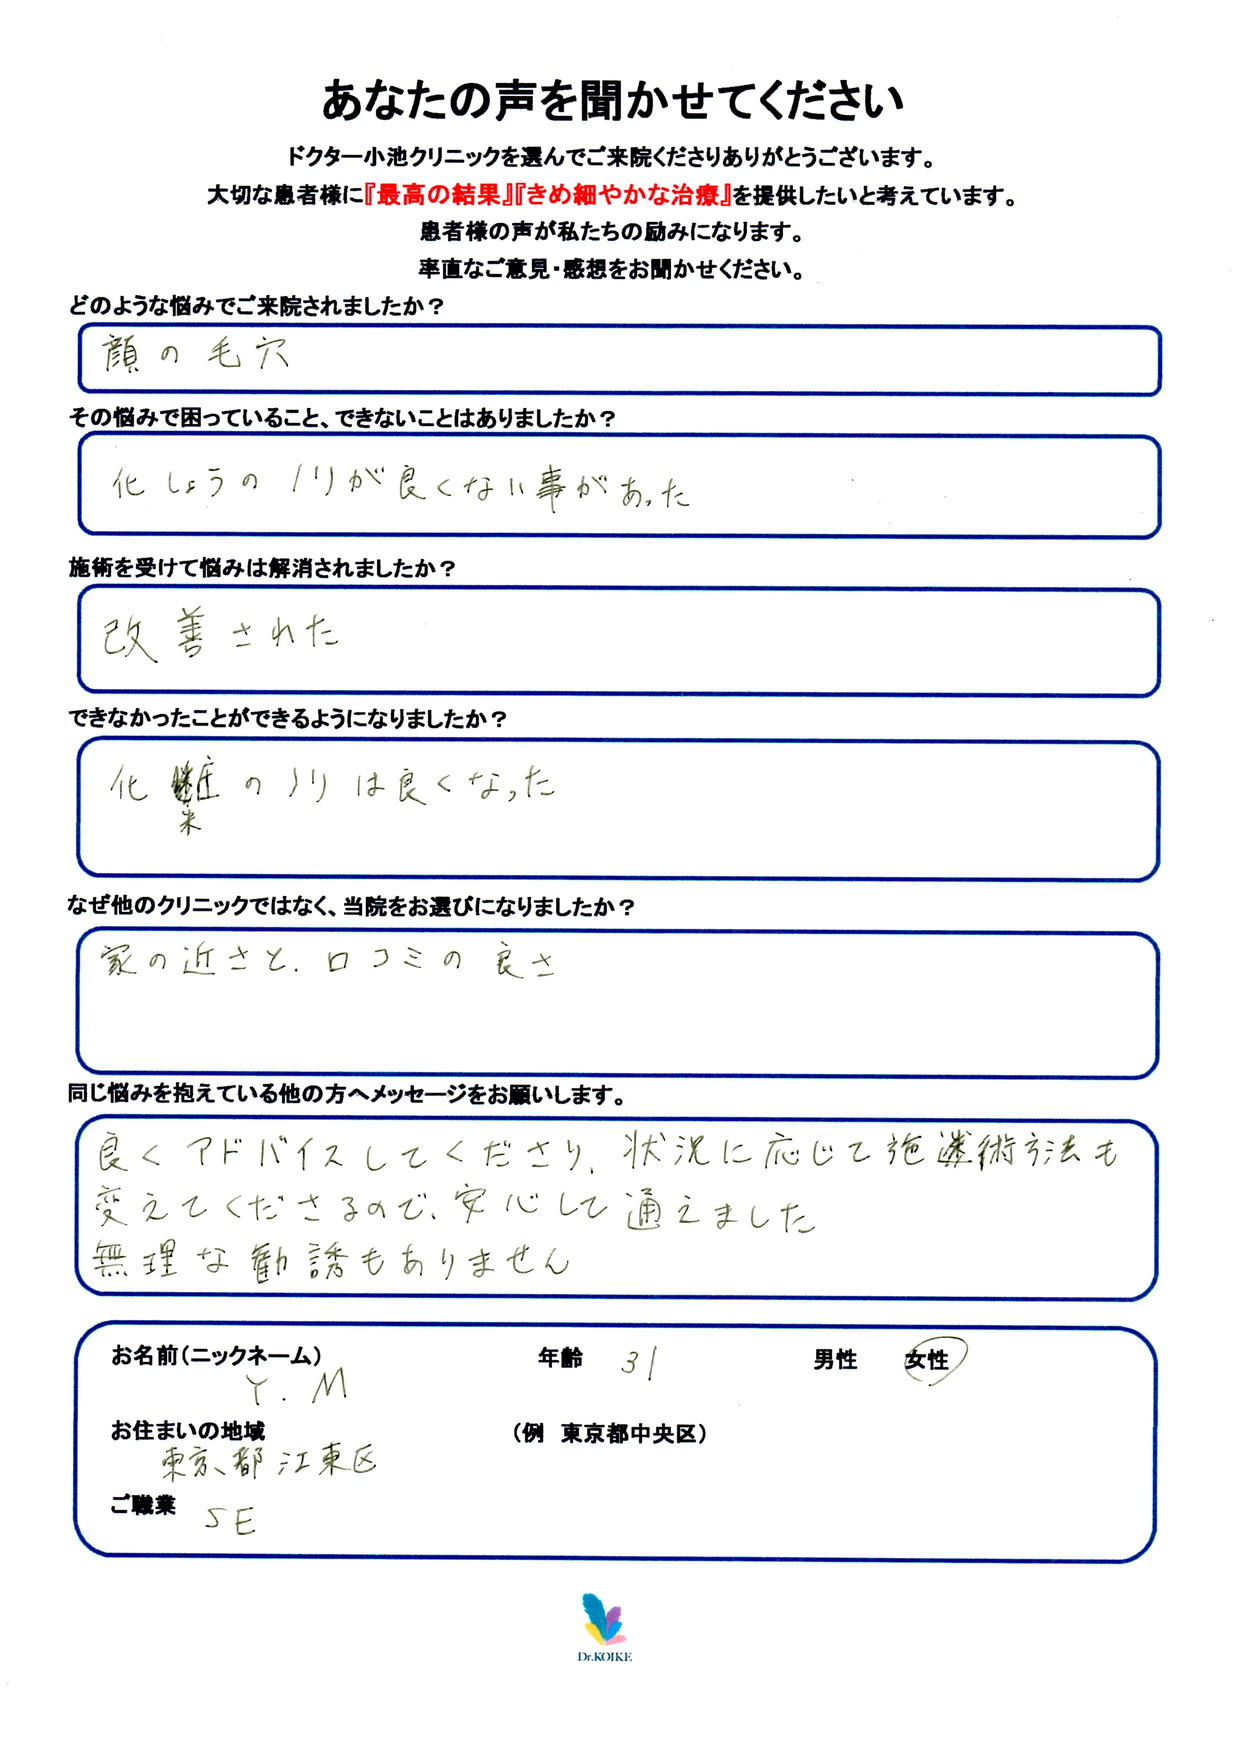 あなたの声を聞かせてください
ドクター小池クリニックを選んでご来院くださりありがとうございます。
大切な患者様に『最高の結果』『きめ細やかな治療』を提供したいと考えています。
患者様の声が私たちの励みになります。
率直なご意見・感想をお聞かせください。
どのような悩みでご来院されましたか?
顔の毛穴
その悩みで困っていること、できないことはありましたか?
化しょうのノリが良くない事があった
施術を受けて悩みは解消されましたか?
改善された
できなかったことができるようになりましたか?
化粧のノリは良くなった
なぜ他のクリニックではなく、当院をお選びになりましたか?
家の近さと、口コミの良さ
同じ悩みを抱えている他の方へメッセージをお願いします。
良くアドバイスしてくださり、状況に応じて施術方法も
変えてくださるので、安心して通えました
無理な勧誘もありません
お名前(ニックネーム) 年齢 31 男性 女性
Y.M
お住まいの地域 (例 東京都中央区)
東京都江東区
ご職業 SE
Dr.KOIKE